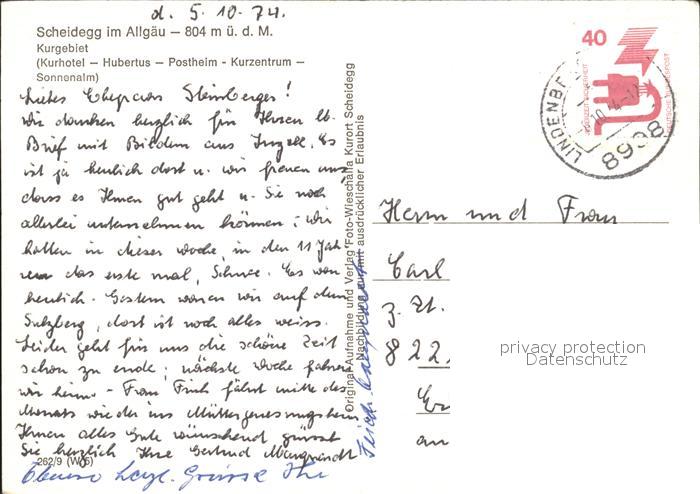 d. 5.10.74.
Scheidegg im Allgäu – 804 m ü. d. M.
Kurgebiet
(Kurhotel – Hubertus – Postheim - Kurzentrum –
Sonnenalm)
Liebes Ehepaar Steinberger!
Wir danken herzlich für Ihren lb.
Brief mit Bildern aus Inzell. Es
ist ja herrlich dort u. wir freuen uns
dass es Ihnen gut geht u. Sie noch
allerlei unternehmen können; wir
hatten in dieser Woche, in den 11 Jah
ren das erste mal, Schnee. Es war
herrlich. Gestern waren wir auf dem
Sulzberg, dort ist noch alles weiss.
Leider geht für uns die schöne Zeit
schon zu ende; nächste Woche fahren
wir heim - Frau Frich fährt mitte des
Monats wieder ins Müttergenesungsheim
Ihnen alles Gute wünschend grüsst
Sie herzlich Ihre Gertrud
262/9 (W/5)
Ebenso herzl. Grüsse Ihr
Original-Aufnahme und Verlag Foto-Wieschalla Kurort Scheidegg
Nachbildung nur mit ausdrücklicher Erlaubnis
40
DEUTSCHE BUNDESPOST
LINDENBE
8998
Herrn und Frau
Carl
3. Zt.
822
privacy protection
Datenschutz